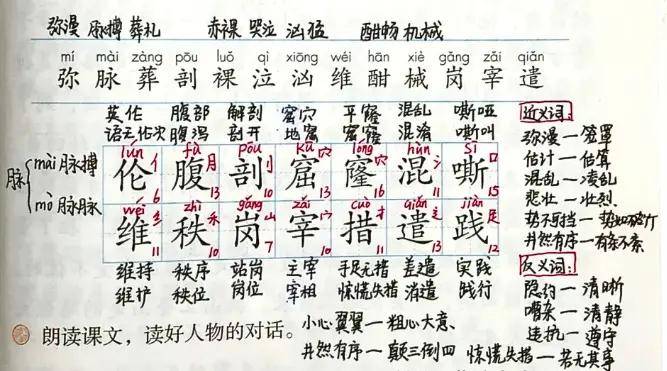 弥漫 脉搏 葬礼 赤裸 哭泣 汹猛 酣畅 机械
mí mài zàng pōu luǒ qì xiōng wéi hān xiè gǎng zǎi qiǎn
弥 脉 葬 剖 裸 泣 汹 维 酣 械 岗 宰 遣
英伦 腹部 解剖 窟穴 平窿 混乱 嘶哑
语无伦次 腹泻 剖开 地窟 窟窿 混淆 嘶叫
lún fù pōu kū lóng hùn sī
伦 腹 剖 窟 窿 混 嘶
亻 月 刂 穴 穴 氵 口
6 13 10 13 16 11 15
脉 mài 脉搏
mò 脉脉
wéi zhì gǎng zǎi cuò qiǎn jiàn
维 秩 岗 宰 措 遣 践
纟 禾 山 宀 扌 辶 足
11 10 7 10 11 13 12
维持 秩序 站岗 主宰 手足无措 差遣 实践
维护 秩位 岗位 宰相 惊慌失措 消遣 践行
近义词:
弥漫—笼罩
估计—估算
混乱—凌乱
悲壮—壮烈
势不可挡—势如破竹
井然有序—有条不紊
反义词:
隐约—清晰
嘈杂—清静
违抗—遵守
朗读课文，读好人物的对话。
小心翼翼—粗心大意、
井然有序—颠三倒四 惊慌失措—若无其事